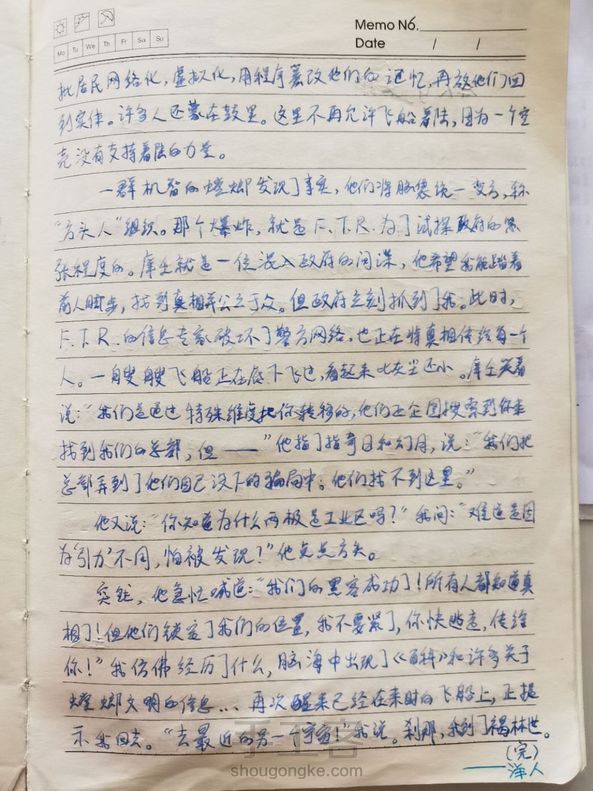 Memo No.
Date / /
Mo Tu We Th Fr Sa Su
批居民网络化,虚拟化,用程序篡改他们的记忆,再放他们回
到实体。许多人还蒙在鼓里。这里不再允许飞船着陆,因为一个空
壳没有支持着陆的力量。
一群机智的螳螂发现了事实,他们将脑袋统一变方,称
"方头人"组织。那个爆炸,就是F.T.R.为了试探政府的紧
张程度的。库仑就是一位混入政府的间谍,他希望我能踏着
前人脚步,找到真相并公之于众。但政府立刻抓到了我。此时,
F.T.R.的信息专家破坏了警方网络,也正在将真相传给每一个
人。一艘艘飞船正在底下飞过,看起来比灰尘还小。库仑笑着
说:"我们是通过特殊维度把你转移的,他们还企图搜索到你来
找到我们的总部,但——"他指了指奇日和幻月,说:"我们把
总部弄到了他们自己设下的骗局中。他们找不到这里。"
他又说:"你知道为什么两极是工业区吗?"我问:"难道是因
为'引力'不同,怕被发现?"他点点方头。
突然,他急忙喊道:"我们的黑客成功了!所有人都知道真
相了!但他们锁定了我们的位置,我不要紧了,你快逃走,传给
你!"我仿佛经历了什么,脑海中出现了《百科》和许多关于
螳螂文明的信息...再次醒来已经在来时的飞船上,正提
示我回去。"去最近的另一个宇宙!"我说。刹那,我到了褐林世。
(完)
——海人
手工客
shougongke.com